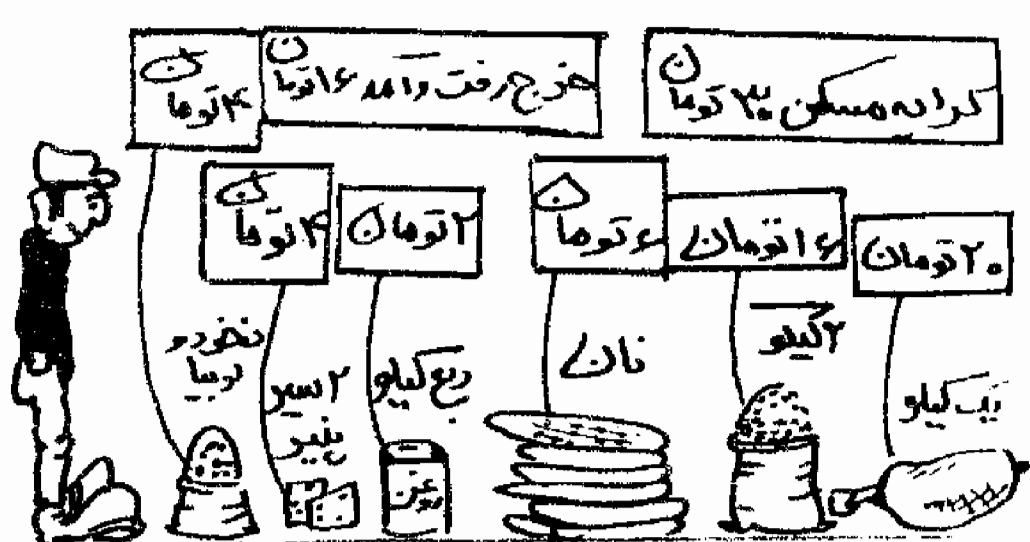 کرایه مسکن ۳۰ تومان
خرج رفت و آمد ۱۶ تومان
۴ تومان
۲۰ تومان
۱۶ تومان
۶ تومان
۲ تومان
۴ تومان
یک کیلو
۲ کیلو
نان
ربع کیلو
روغن
۲ سیر
پنیر
نخود و
لوبیا